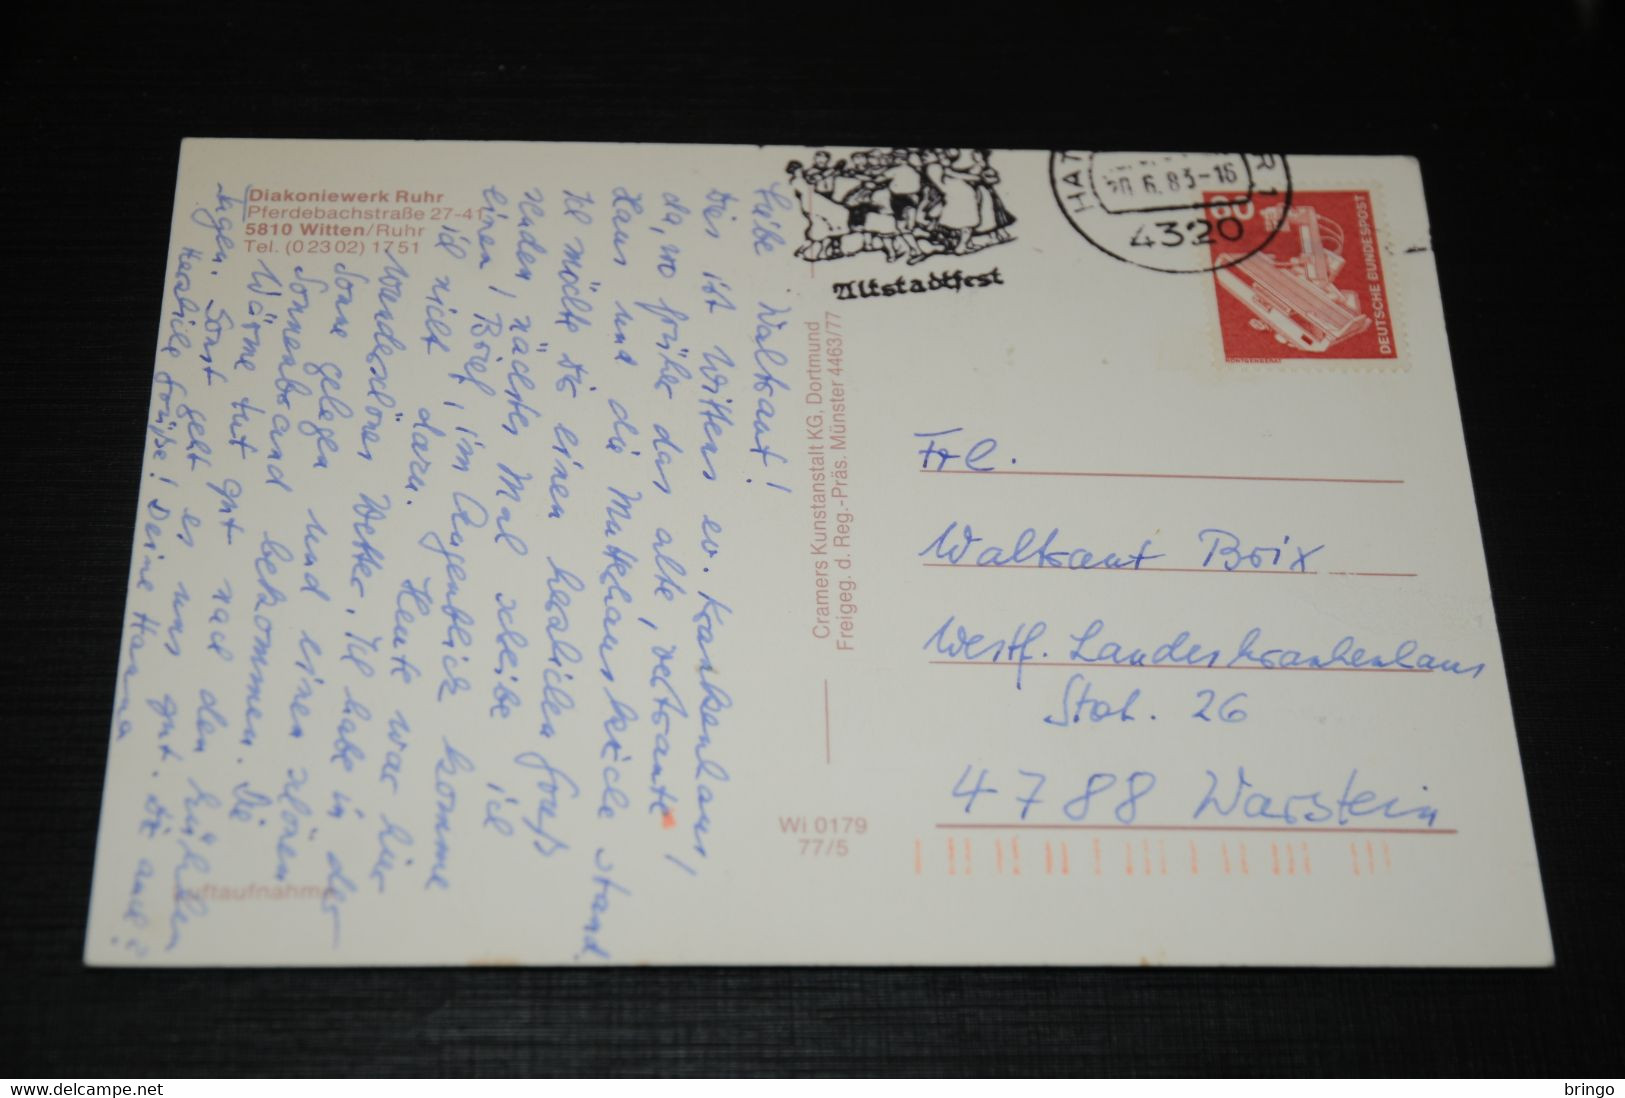 Diakoniewerk Ruhr
Pferdebachstraße 27-41
5810 Witten/Ruhr
Tel. (0 23 02) 17 51
Liebe Waltraut!
Dies ist Wittens ev. Krankenhaus,
da, wo früher das alte, vertraute
Haus und die Mutterhauskirche stand.
Ich möchte Dir einen herzlichen Gruß
senden, nächstes Mal schreibe ich
einen Brief, im Augenblick komme
ich nicht dazu. Heute war hier
wunderschönes Wetter. Ich habe in der
Sonne gelegen und einen schönen
Sonnenbrand bekommen. Die
Wärme tut gut nach den kühlen
Tagen. Sonst geht es uns gut. Dir auch?
Herzliche Grüße! Deine Hanna
Luftaufnahme
Cramers Kunstanstalt KG, Dortmund
Freigeg. d. Reg.-Präs. Münster 4463/77
Wi 0179
77/5
Altstadtfest
HAT R 1
6.83-16
4320
80
DEUTSCHE BUNDESPOST
RÖNTGENGERÄT
Frl.
Waltraut Brix
Westf. Landeskrankenhaus
Stat. 26
4788 Warstein
Delcampe.net
bringo